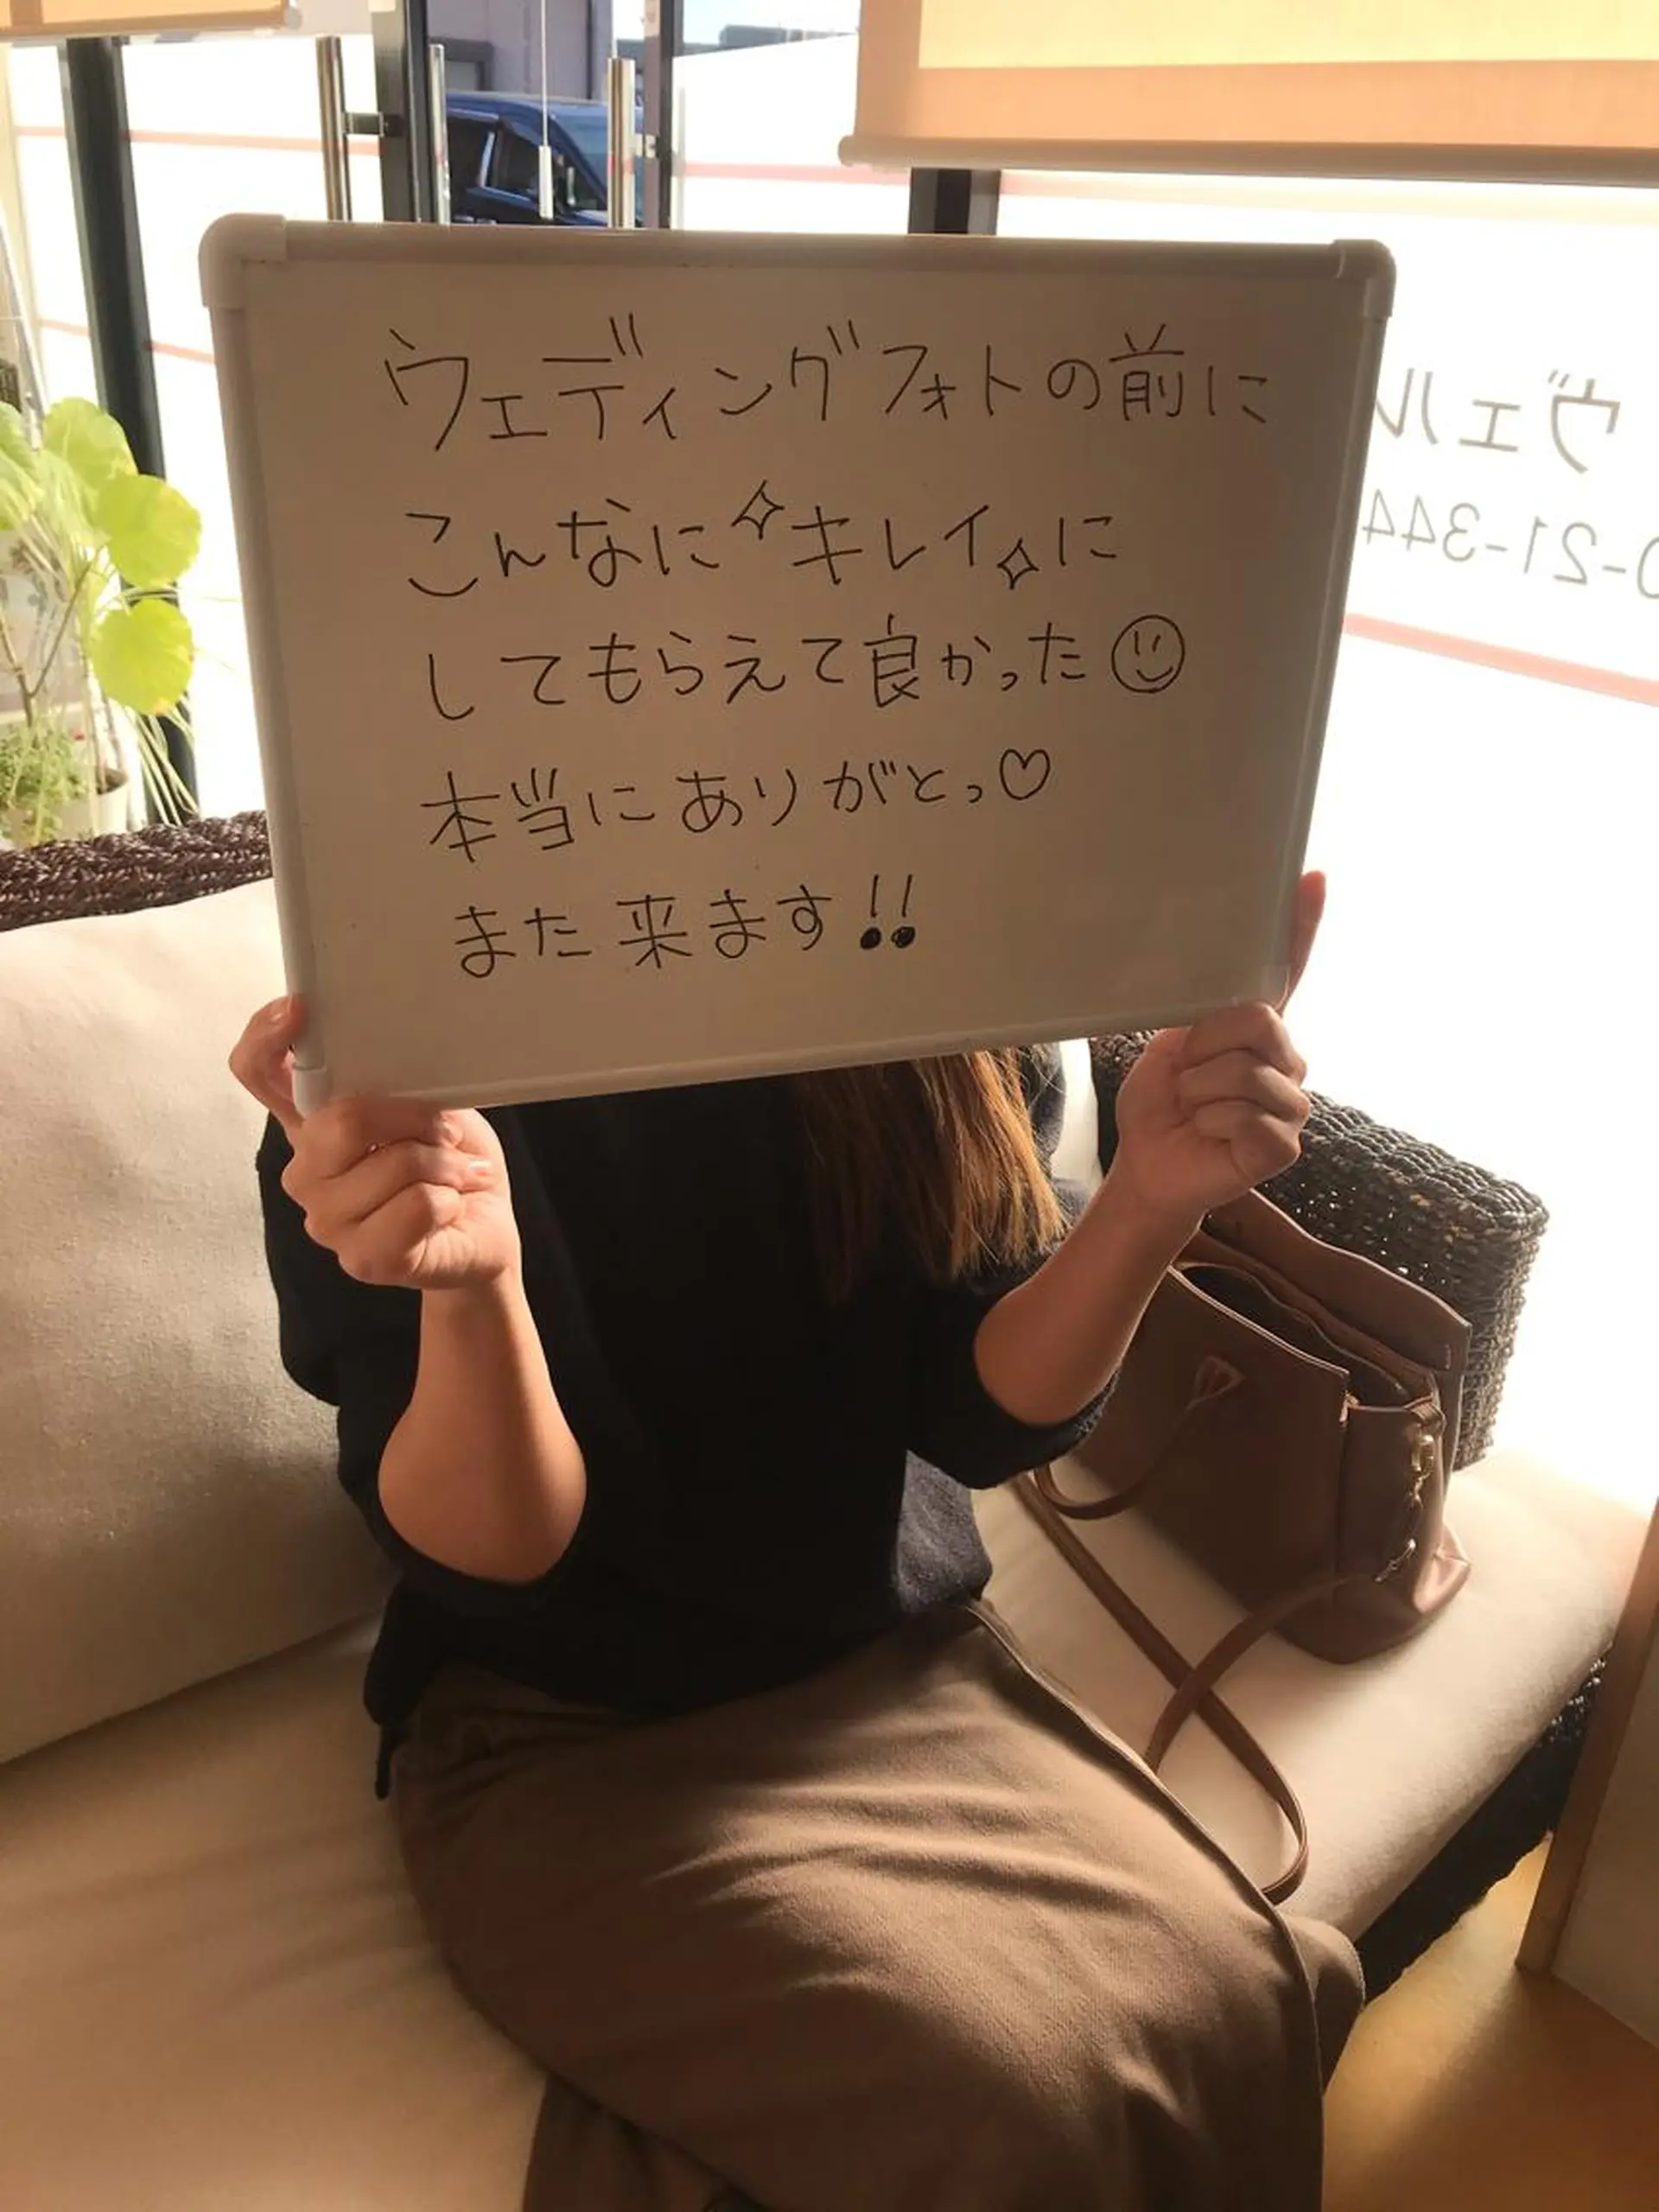 ウェディングフォトの前に
こんなに✧キレイ✧に
してもらえて良かった☺
本当にありがとっ♡
また来ます!!
ヴェル
0-21-344